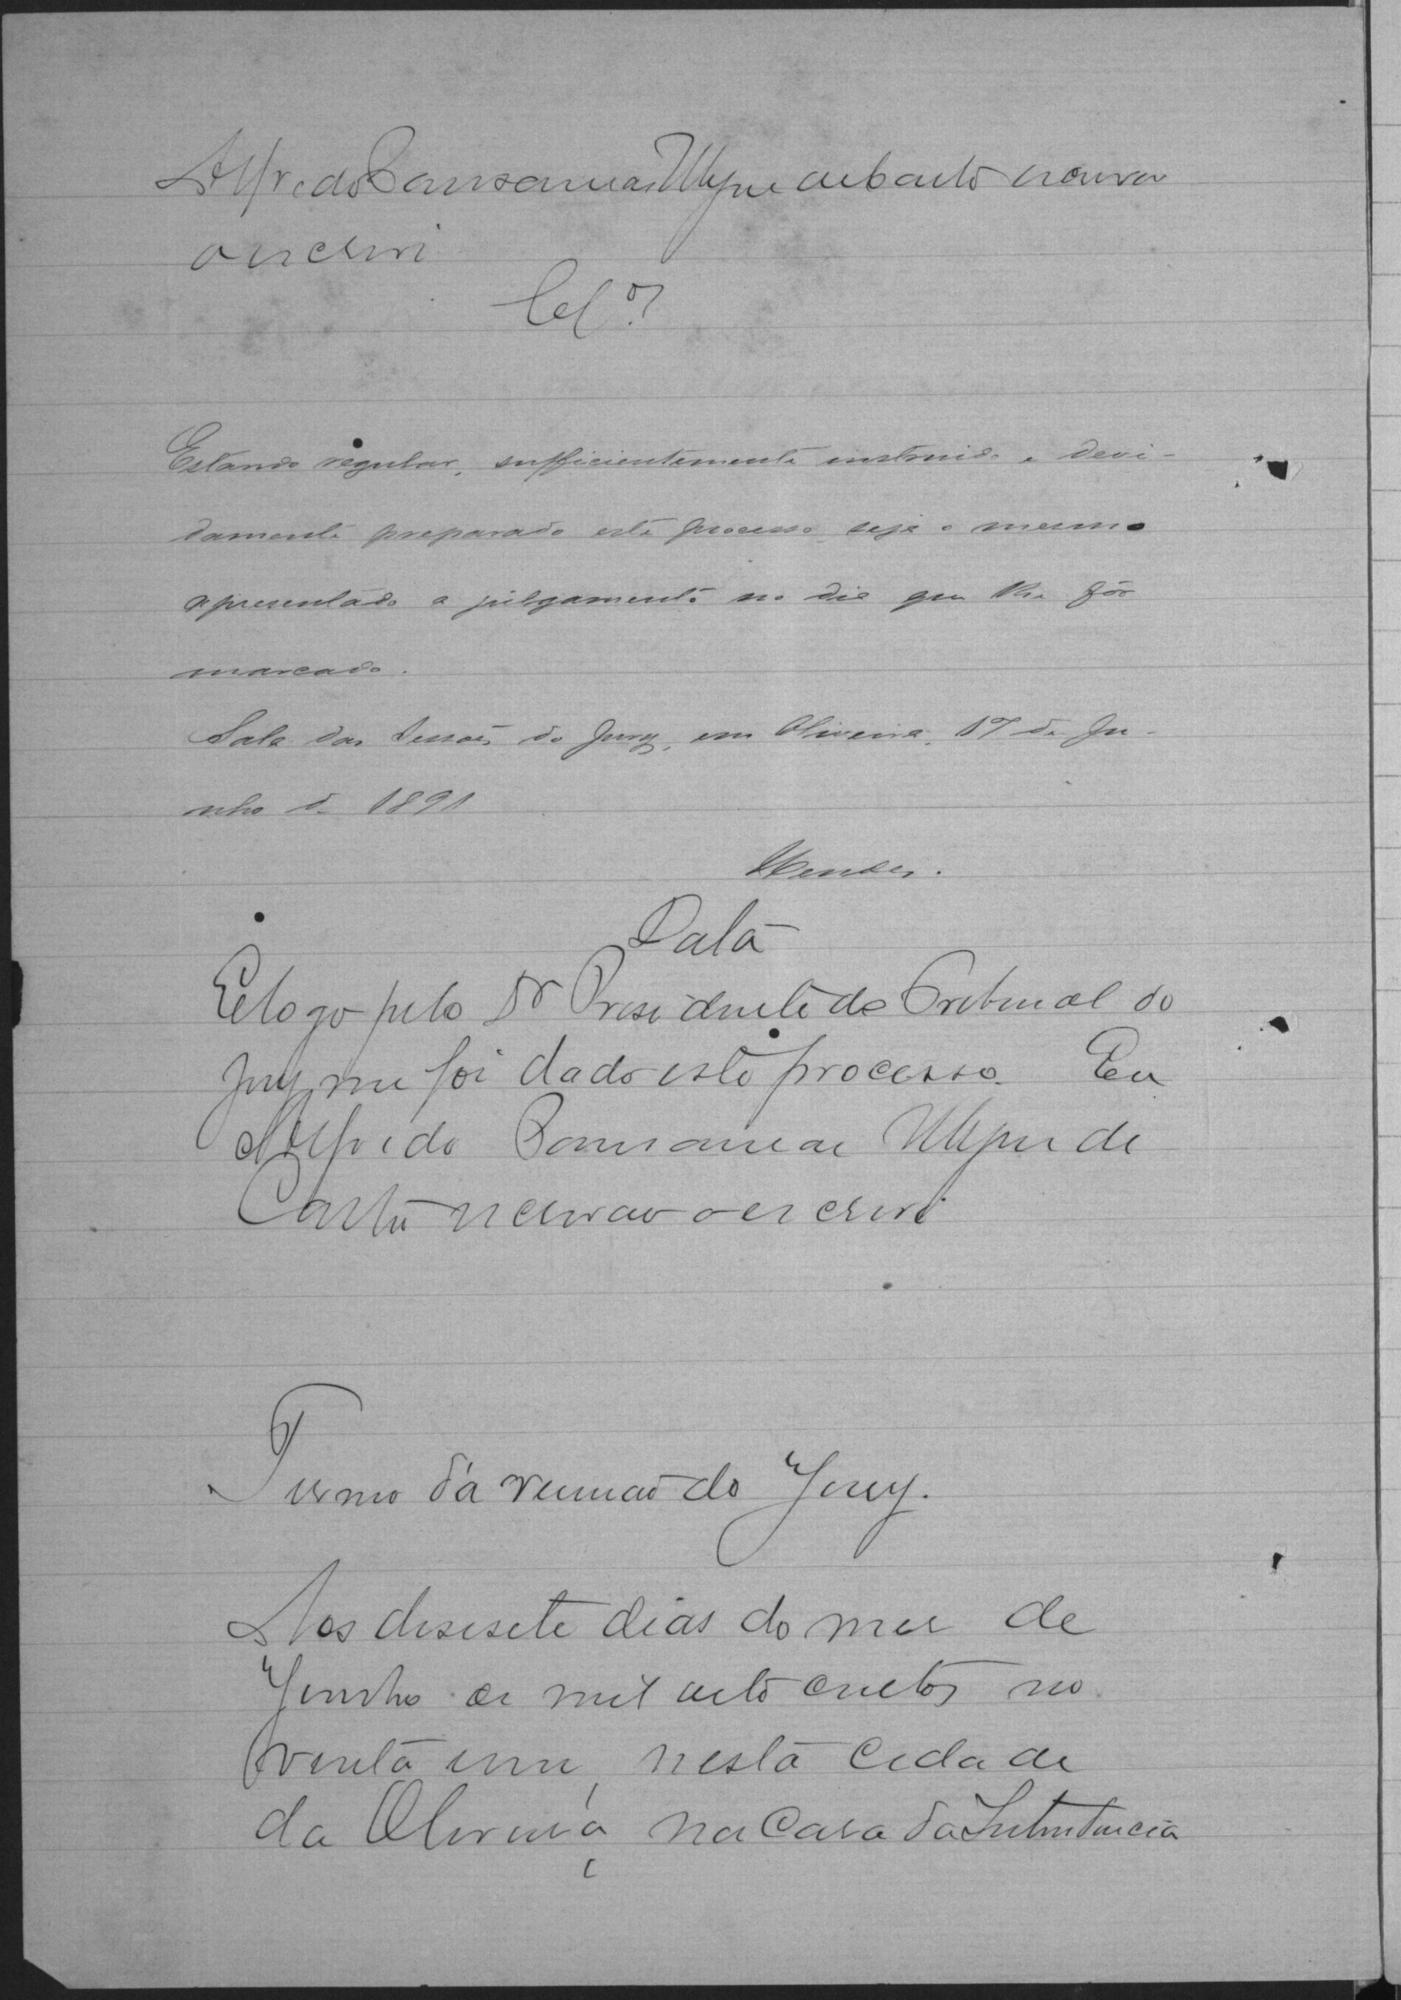 Alfredo Pausanias Alypu de Castro escrivao
o escrevi
Cls.os
Estando regular, sufficientemente instruido e devi-
damente preparado este processo seja o mesmo
apresentado a julgamento no dia que lhe fôr
marcado.
Sala das Sessões do Jury, em Oliveira, 17 de Ju-
nho de 1891
Mendes.
Data
E logo pelo Dr Presidente do Tribunal do
Jury me foi dado este processo. Eu
Alfredo Pausanias de
Castro escrivao o escrevi
Termo da reuniao do Jury.
Aos desesete dias do mes de
Junho de mil oito centos no
venta um, nesta cidade
da Oliveira, na Casa da Intendencia